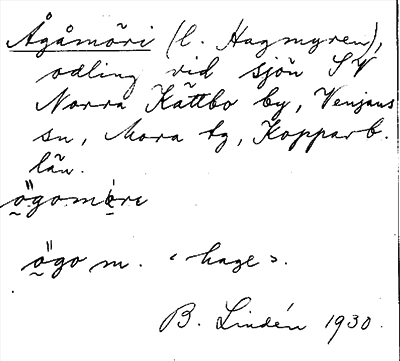 Ågåmöri (l. Hagmyren),
odling vid sjön SV
Norra Kättbo by, Venjans
sn, Mora tg, Kopparb.
län.
ö̬̈gomöri
ö̬̈go m. ‹hage›.
B. Lindén 1930.